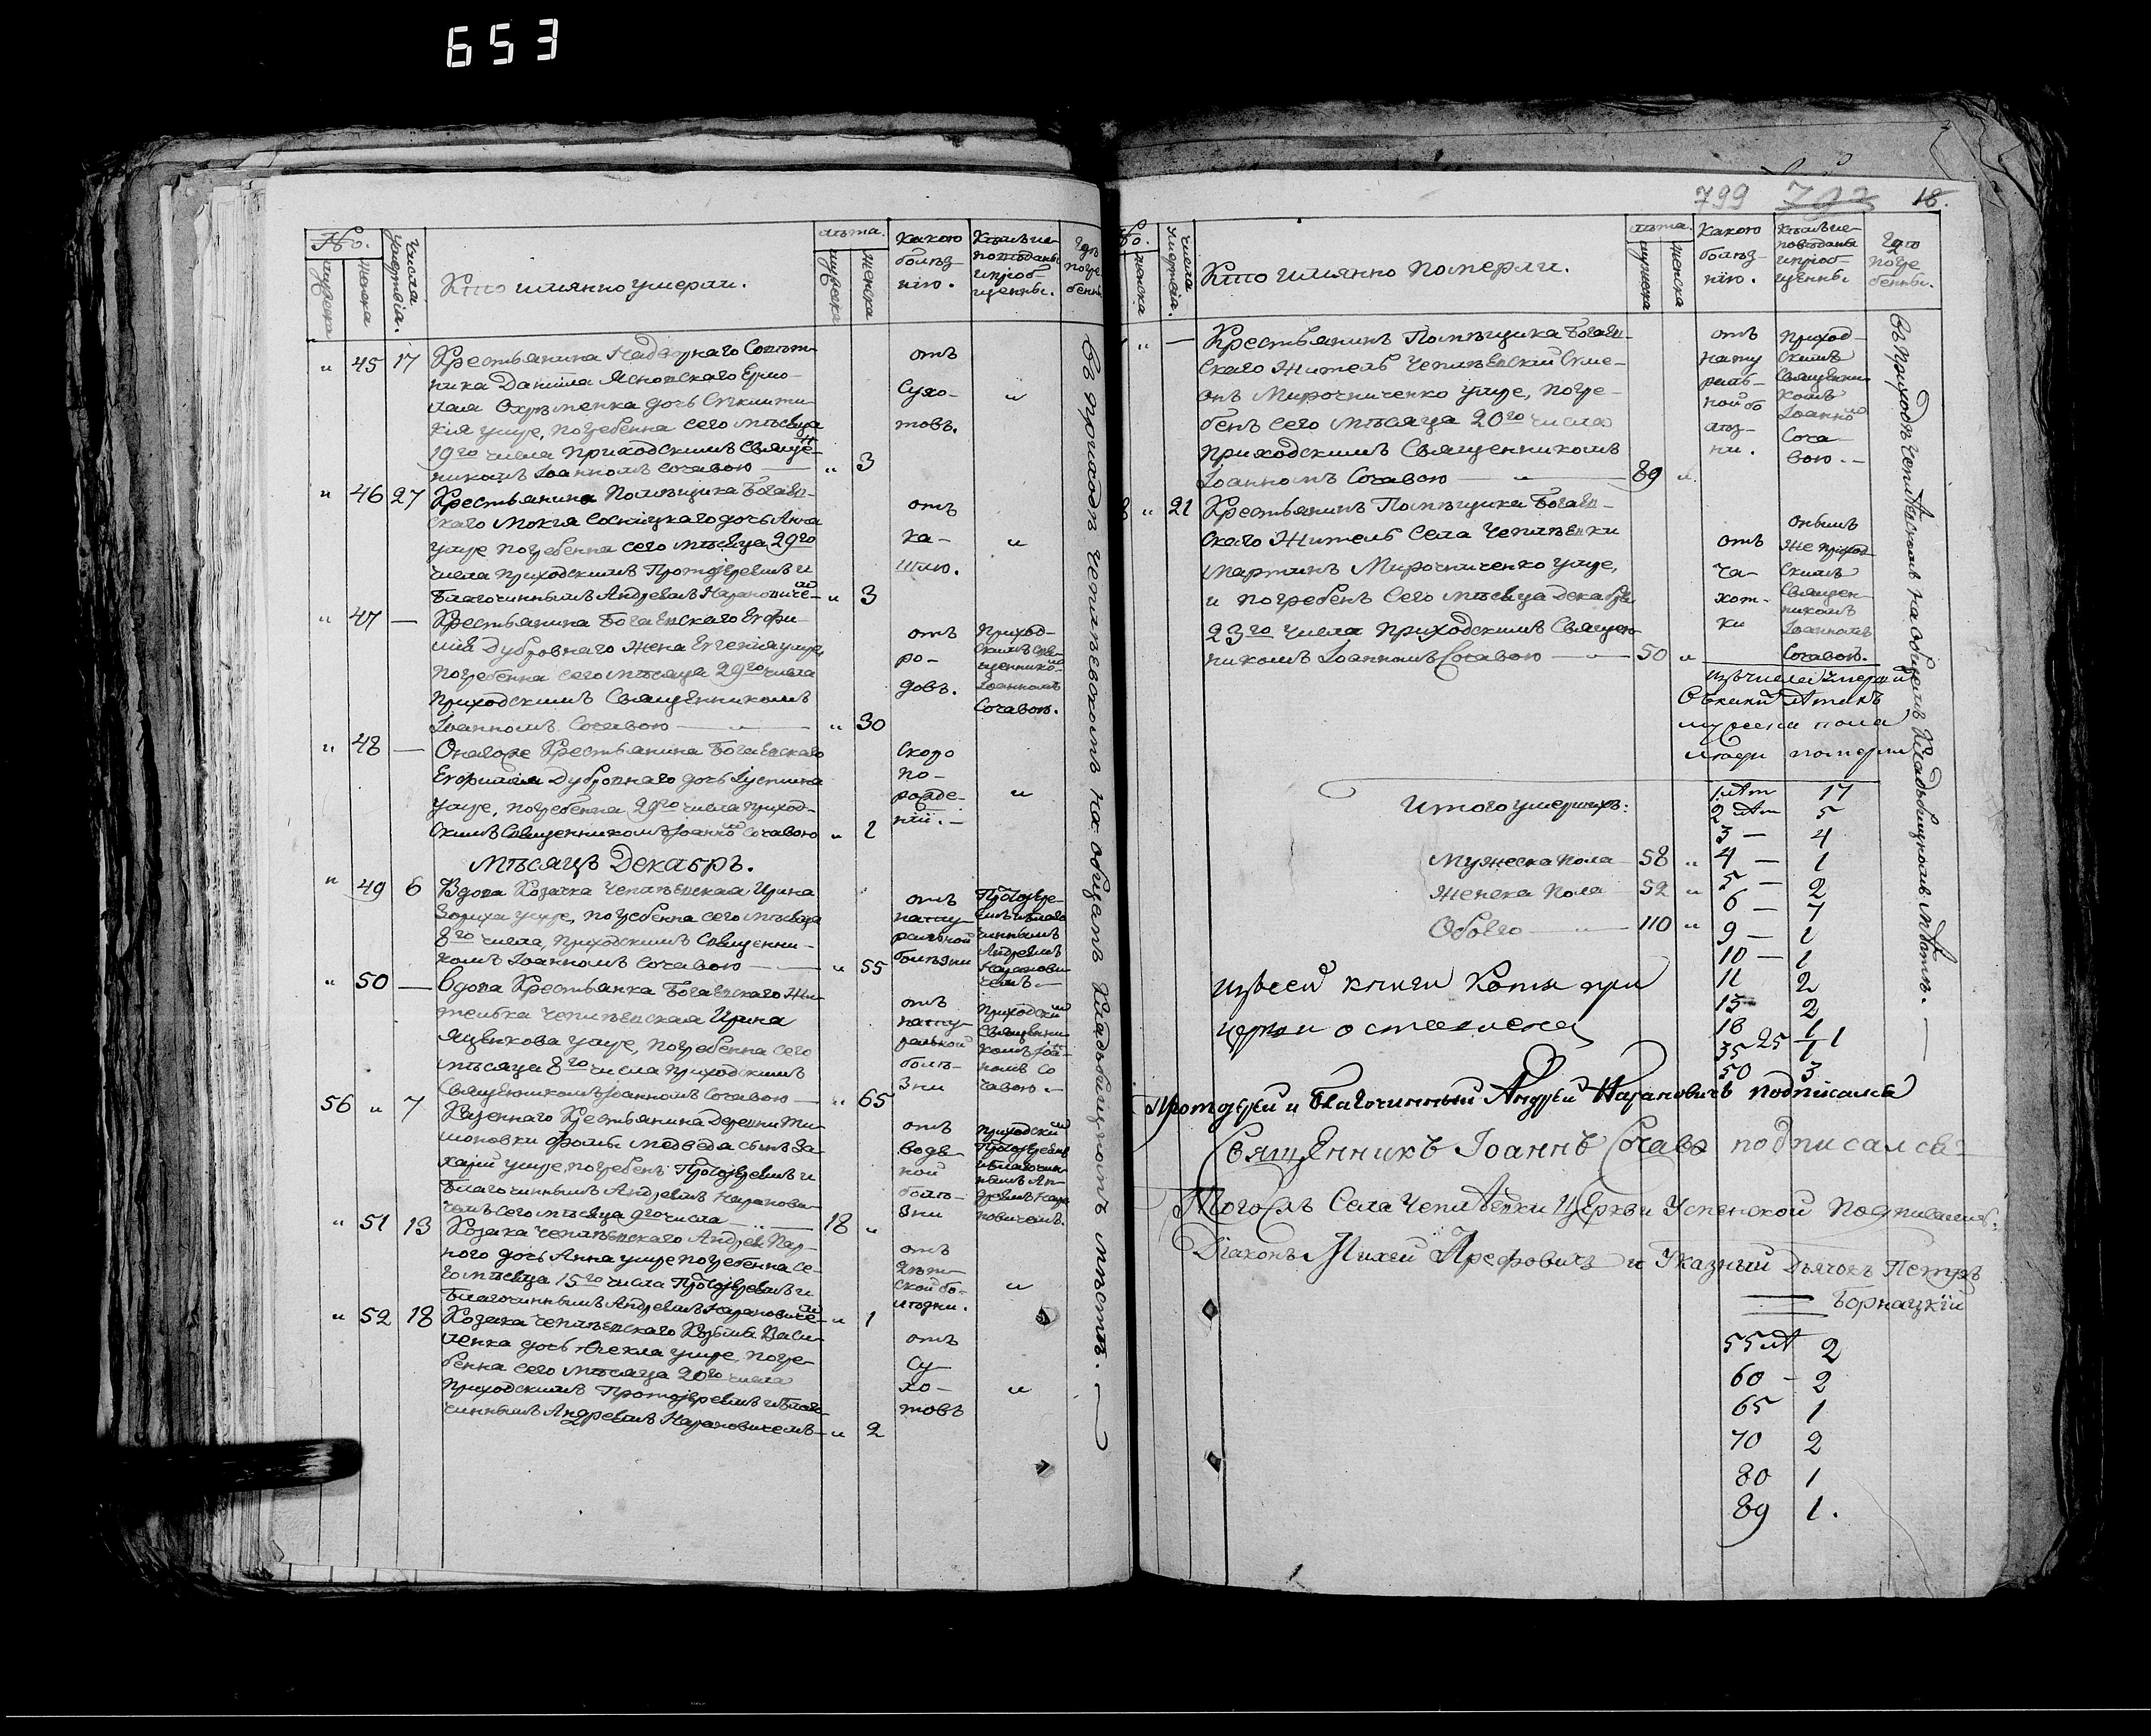 653
№.
мужеска
женска
Числа умертвія.
Кто имянно умерли.
лѣта.
мужеска
женска
какою
болѣз-
нію.
Кѣмъ ис-
повѣданы
и пріоб-
щенны.
Гдѣ
погре-
бенны
" 45 17 Крестьянина Надворнаго Совѣт-
ника Даніила Ясновскаго Ермо-
лая Охрѣменка дочь
умре, погребенна сего мѣсяца
19го числа Приходскимъ Священ-
никомъ Іоанномъ Сочавою — " 3
отъ
Сухо-
товъ.
"
" 46 27 Крестьянина Помѣщика Богаев-
скаго Мокія Сосницкаго дочь Анна
умре погребенна сего мѣсяца 29го
числа Приходскимъ Протоіереемъ и
Благочиннымъ Андреемъ Нарановиче- " 3
отъ
ка-
шлю.
"
" 47 — Крестьянина Богаевскаго Евфи-
мія Дубровнаго жена Евгенія умре,
погребенна сего мѣсяца 29го числа
Приходскимъ Священникомъ
Іоанномъ Сочавою — " — " 30
отъ
ро-
довъ.
Приход-
скимъ Свя-
щеннико
Іоанномъ
Сочавою.
" 48 — Онагоже Крестьянина Богаевскаго
Дубровнаго дочь Іустина
умре, погребенна 29го числа Приход-
скимъ Священникомъ Іоанно Сочавою " 1
Скоро
по-
рожде-
ніи.—
"
Мѣсяцъ Декабрь.
" 49 6 Вдова Козачка Чеплѣевская Ирина
Зориха умре, погребенна сего мѣсяца
8го числа, Приходскимъ Священни-
комъ Іоанномъ Сочавою — " 55
отъ
нату-
ральной
болѣзни
Протоіере-
емъ и благо
чиннымъ
Андреемъ
Наранови-
чемъ.—
" 50 — Вдова Крестьянка Богаевскаго Жи-
телька Чеплѣевская Ирина
Яценкова умре, погребенна сего
мѣсяца 8го числа Приходскимъ
Священникомъ Іоанномъ Сочавою — " 65
отъ
нату-
ральной
болѣ-
зни
Приходски
Священни-
комъ Іоан-
номъ Со
чавою.—
56 " 7 Казеннаго Крестьянина Деревни Ти-
моновки Фомы Медведа сынъ За-
харій умре, погребенъ Протоіереемъ и
Благочиннымъ Андреемъ Наранови-
чемъ сего мѣсяца 9го числа — " — 18 "
отъ
водя-
ной
болѣ-
зни
Приходски
Протоіереемъ
и благочин-
нымъ Ан-
дреемъ Нара
новичемъ.
" 51 13 Козака Чеплѣевскаго Андрея Пар-
ного дочь Анна умре погребенна се-
го мѣсяца 15го числа Протоіереемъ и
Благочиннымъ Андреемъ Нарановиче- " 1
отъ
дѣт-
ской бо-
лѣзни.
"
" 52 18 Козака Чеплѣевскаго Кузьмы Васи-
ленка дочь Ѳекла умре, погре-
бенна сего мѣсяца 20го числа
Приходскимъ Протоіереемъ и благо-
чиннымъ Андреемъ Нарановичемъ— " 2
отъ
Су-
хо-
товъ
"
Въ приходѣ Чеплѣевскомъ на общемъ Кладбищномъ мѣстѣ.
799 792 18.
№.
женска
Числа умертвія.
Кто имянно померли.
лѣта.
мужеска
женска
Какою
болѣз-
нію.
Кѣмъ ис-
повѣданы
и пріоб-
щенны.
Гдѣ
погре
бенны.
" — Крестьянинъ Помѣщика Богаев-
скаго Житель Чеплѣевскій Симе-
онъ Мирочниченко умре, погре-
бенъ сего мѣсяца 20го числа
Приходскимъ Священникомъ
Іоанномъ Сочавою — " — 89 "
отъ
нату
раль-
ной бо
лѣз-
ни.
Приход-
скимъ
Священни
комъ
Іоанно
Соча-
вою.—
" 21 Крестьянинъ Помѣщика Богаев-
скаго Житель Села Чеплѣевки
Мартинъ Мирочниченко умре,
и погребенъ сего мѣсяца Декабря
23го числа Приходскимъ Священ-
никомъ Іоанномъ Сочавою — " — 50 "
отъ
ча-
хот-
ки
онымъ
же Приход-
скимъ
Священ-
никомъ
Іоанномъ
Сочавою.
Въ приходѣ Чеплѣевскомъ на общемъ Кладбищномъ мѣстѣ.
мужеска пола
люди померли
Итого умершихъ:
Мужеска пола — 58 "
Женска пола — 52 "
Обоего — " — 110 "
1 лѣт 17
2 лѣт 5
3 — 4
4 — 1
5 — 2
6 — 7
9 — 1
10 — 1
11 2
15 2
18 1
25 1
35 1
50 3
изъ сей книги Копія при
церкви оставлена
Протоіерей и Благочинный Андрей Нарановичъ подписался
Священникъ Іоаннъ Сочава подписался
Тогожъ Села Чеплѣевки Церкви Успенской Подписались:
Діаконъ Михей Арефовичъ и Указный Дьячокъ Петръ
Борнацкій
55 лѣт 2
60 - 2
65 1
70 2
80 1
89 1.